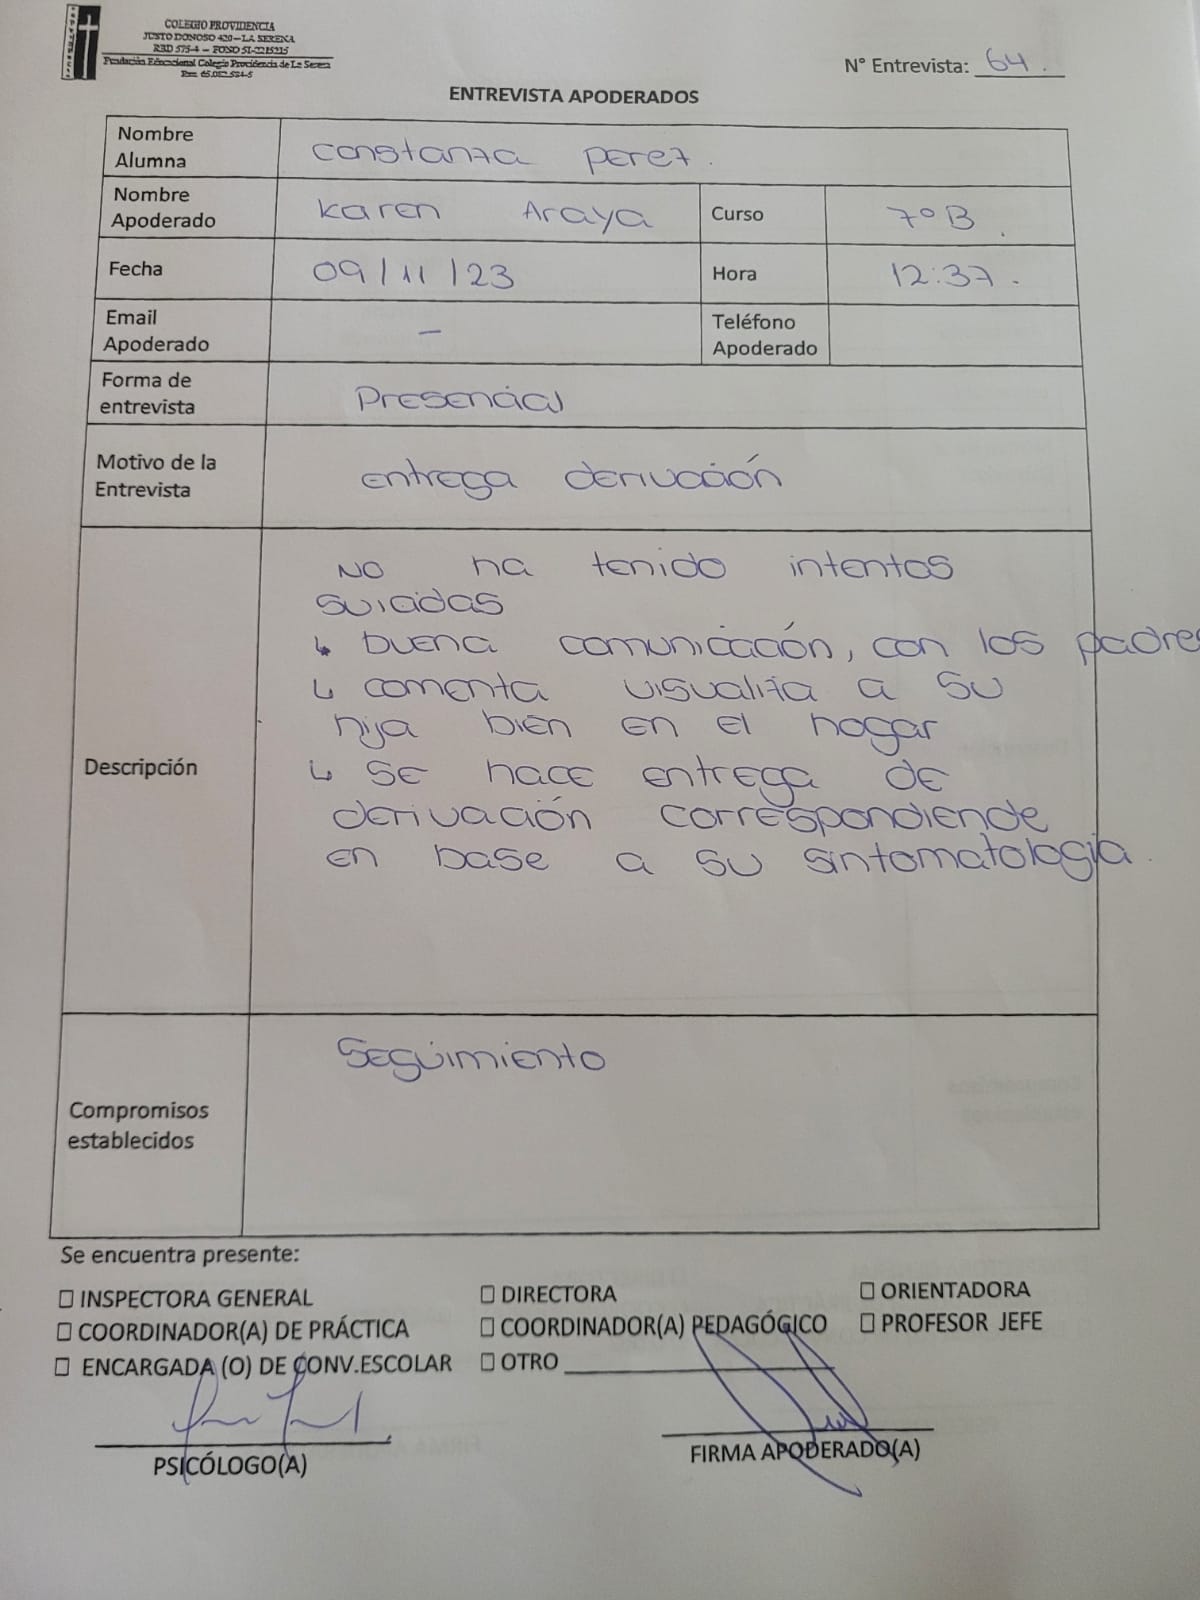 COLEGIO PROVIDENCIA
JUSTO DONOSO 420 – LA SERENA
RBD 575-4 – FONO 51-2215215
Fundación Educacional Colegio Providencia de La Serena
N° Entrevista: 64.
ENTREVISTA APODERADOS
Nombre Alumna constanza perez.
Nombre Apoderado Karen Araya Curso 7°B.
Fecha 09/11/23 Hora 12:37.
Email Apoderado – Teléfono Apoderado
Forma de entrevista Presencial
Motivo de la Entrevista entrega derivación
Descripción
NO ha tenido intentos
suicidas
↳ buena comunicación, con los padres
↳ comenta visualiza a su
hija bien en el hogar
↳ se hace entrega de
derivación correspondiende
en base a su sintomatologia.
Compromisos establecidos Seguimiento
Se encuentra presente:
☐ INSPECTORA GENERAL ☐ DIRECTORA ☐ ORIENTADORA
☐ COORDINADOR(A) DE PRÁCTICA ☐ COORDINADOR(A) PEDAGÓGICO ☐ PROFESOR JEFE
☐ ENCARGADA (O) DE CONV.ESCOLAR ☐ OTRO
PSICÓLOGO(A) FIRMA APODERADO(A)